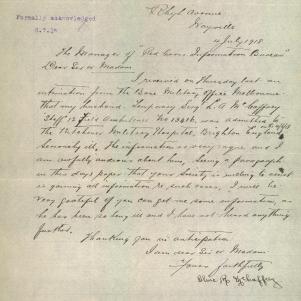 Formally acknowledged
8.7.18
Rhyl Avenue
Wayville
4 July 1918
The Manager of "Red Cross Information Bureau"
Dear Sir or Madam
I received on Thursday last an
intimation from the Base Military Office Melbourne
that my husband Temporary Sergt
Field Ambulance No 13416 was admitted to
the Kitchener Military Hospital, Brighton England
Seriously ill, The information is very vague and I
am awfully anxious about him, Seeing a paragraph
in this days paper that your Society is willing to assist
in gaining all information re such cases, I will be
very grateful if you can get me some information, as
he has been so long ill and I have not heard anything
further.
Thanking you in anticipation
I am dear Sir or Madam
Yours faithfully
Olive R. McGaffrey